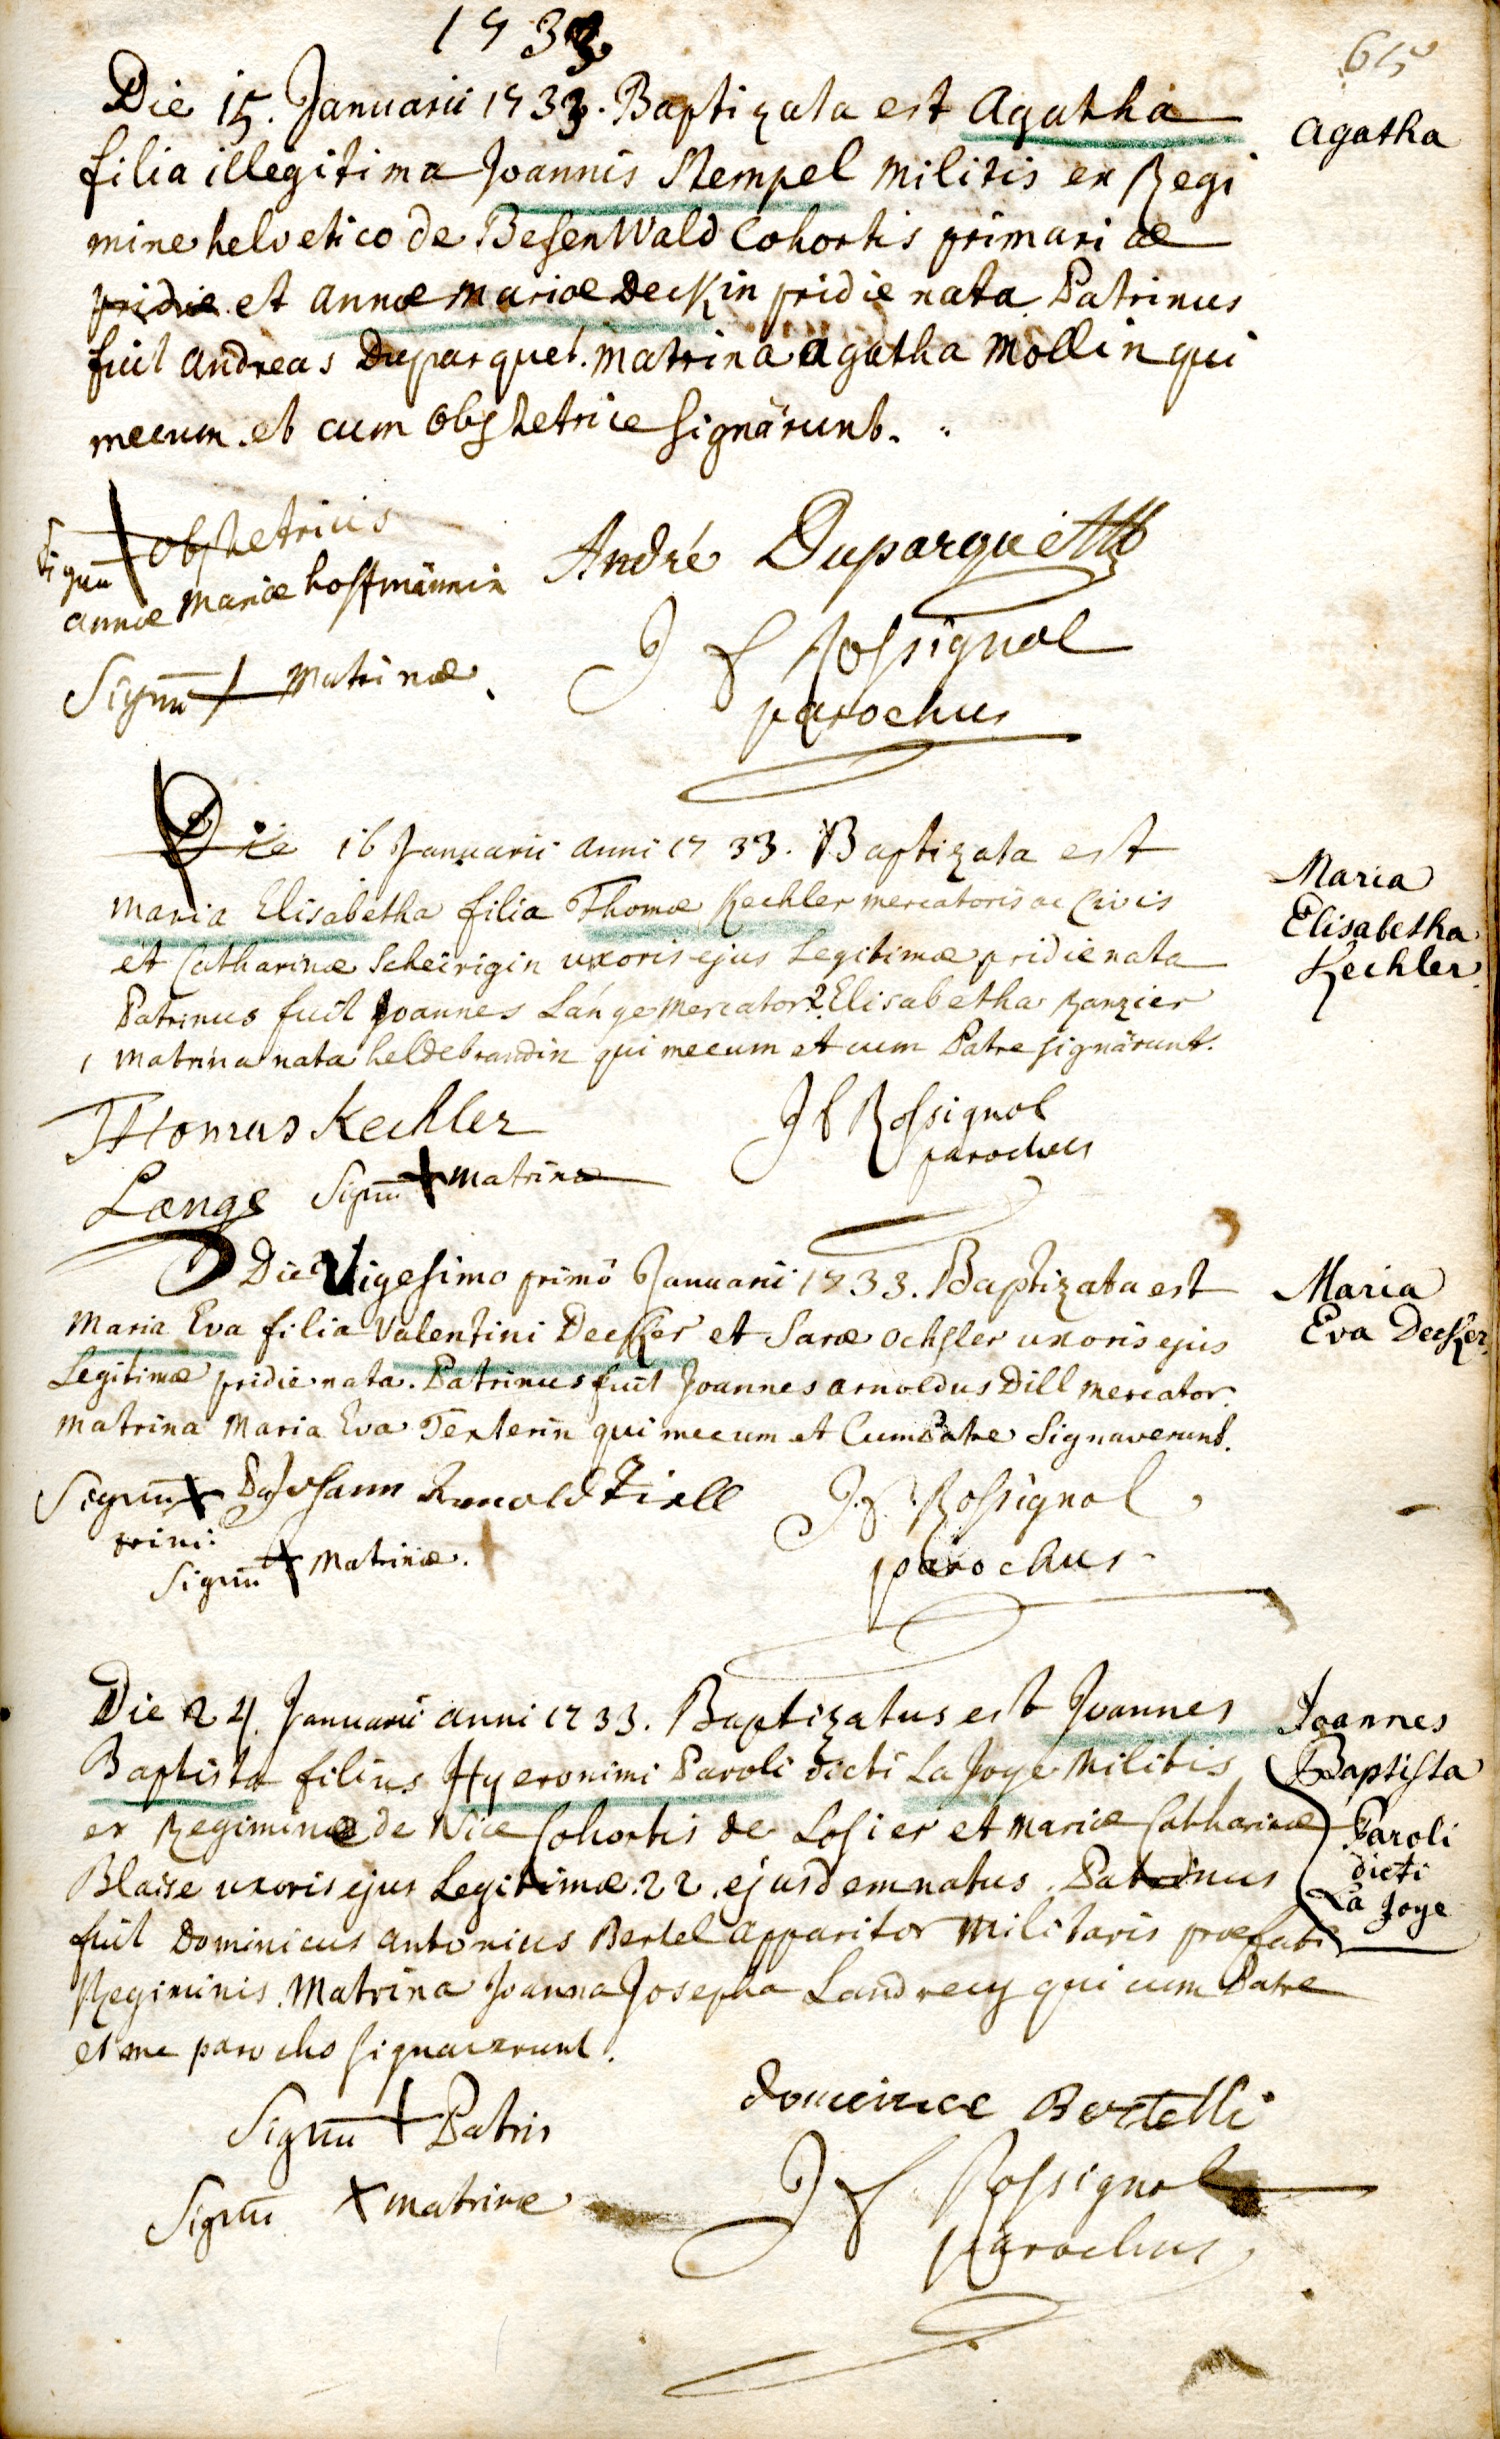 1733
615
Die 15. Januarii 1733. Baptizata est Agatha
Agatha
filia illegitima Joannis Stempel militis ex Regi
mine helvetico de BesenWald Cohortis primariae
pridie et annae mariae Deckin pridie nata Patrinus
fuit andreas Duparquet. matrina agatha Mollin qui
mecum et cum Obstetrice signârunt.
Signū + obstetricis
annae mariae hoffmännin
André Duparquet
Signū + matrinae.
J f Rossignol
parochus
Die 16 Januarii anni 1733. Baptizata est
maria Elisabetha filia Thomae Kechler mercatoris ac Civis
et Catharinae Scheirigin uxoris ejus Legitimae pridie nata
Patrinus fuit Joannes Lange mercator & Elisabetha Ranzier
matrina nata heldebrandin qui mecum et cum Patre signârunt.
Maria
Elisabetha
Kechler.
Thomas Kechler
J f Rossignol
parochus
Lange Signū + matrinae
Die Vigesimo primô Januarii 1733. Baptizata est
Maria Eva filia Valentini Decker et Sarae ochsler uxoris ejus
Legitimae pridie nata. Patrinus fuit Joannes arnoldus Dill mercator.
matrina Maria Eva Texterin qui mecum et Cum Patre Signaverunt.
Maria
Eva Decker.
Signū + Pa Johann Arnold Tiell
trini.
Signū + matrinae.
J. f. Rossignol
parochus
Die 24. Januarii anni 1733. Baptizatus est Joannes
Baptista filius Hyeronimi Paroli dicti La Joye Militis
ex Regimine de Nice Cohortis de Losier et mariae Catharinae
Blaise uxoris ejus Legitimae. 22. ejusdem natus. Patrinus
fuit Dominicus antonius Bertel apparitor militaris praefati
Regiminis. Matrina Joanna Josepha Landrecy qui cum Patre
et me parocho signaverunt.
Joannes
Baptista
Paroli
dicti
La Joye
Signū + Patris
Bertelli
Signū + matrinae
J f Rossignol
parochus